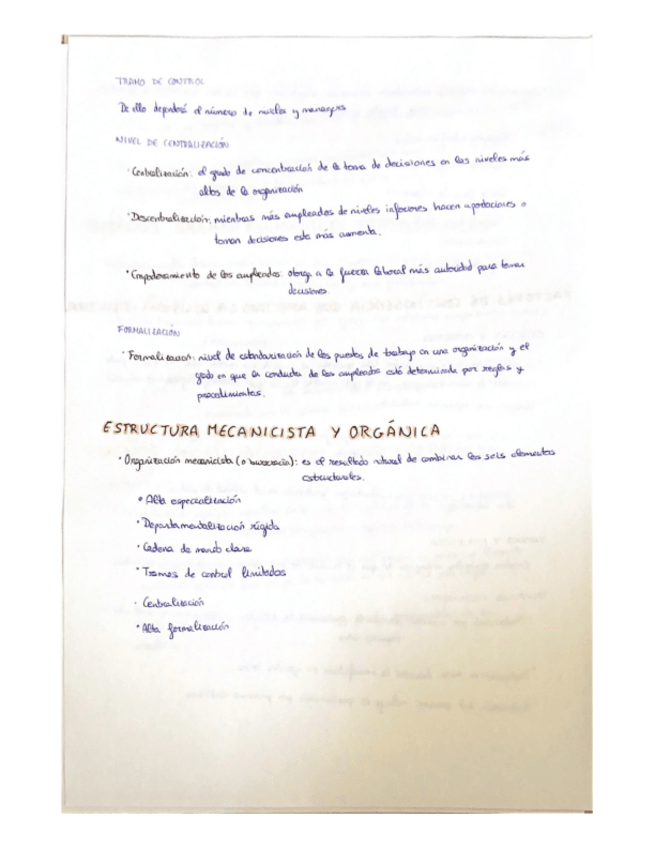 TRAMO DE CONTROL
De ello dependerá el número de niveles y managers
NIVEL DE CENTRALIZACIÓN
· Centralización: el grado de concentración de la toma de decisiones en los niveles más
altos de la organización
· Descentralización: mientras más empleados de niveles inferiores hacen aportaciones o
toman decisiones esta más aumenta.
· Empoderamiento de los empleados: otorga a la fuerza laboral más autoridad para tomar
decisiones.
FORMALIZACIÓN
· Formalización: nivel de estandarización de los puestos de trabajo en una organización y el
grado en que la conducta de los empleados está determinada por reglas y
procedimientos.
ESTRUCTURA MECANICISTA Y ORGÁNICA
· Organización mecanicista (o burocracia): es el resultado natural de combinar los seis elementos
estructurales.
· Alta especialización
· Departamentalización rígida
· Cadena de mando clara
· Tramos de control limitados
· Centralización
· Alta formalización